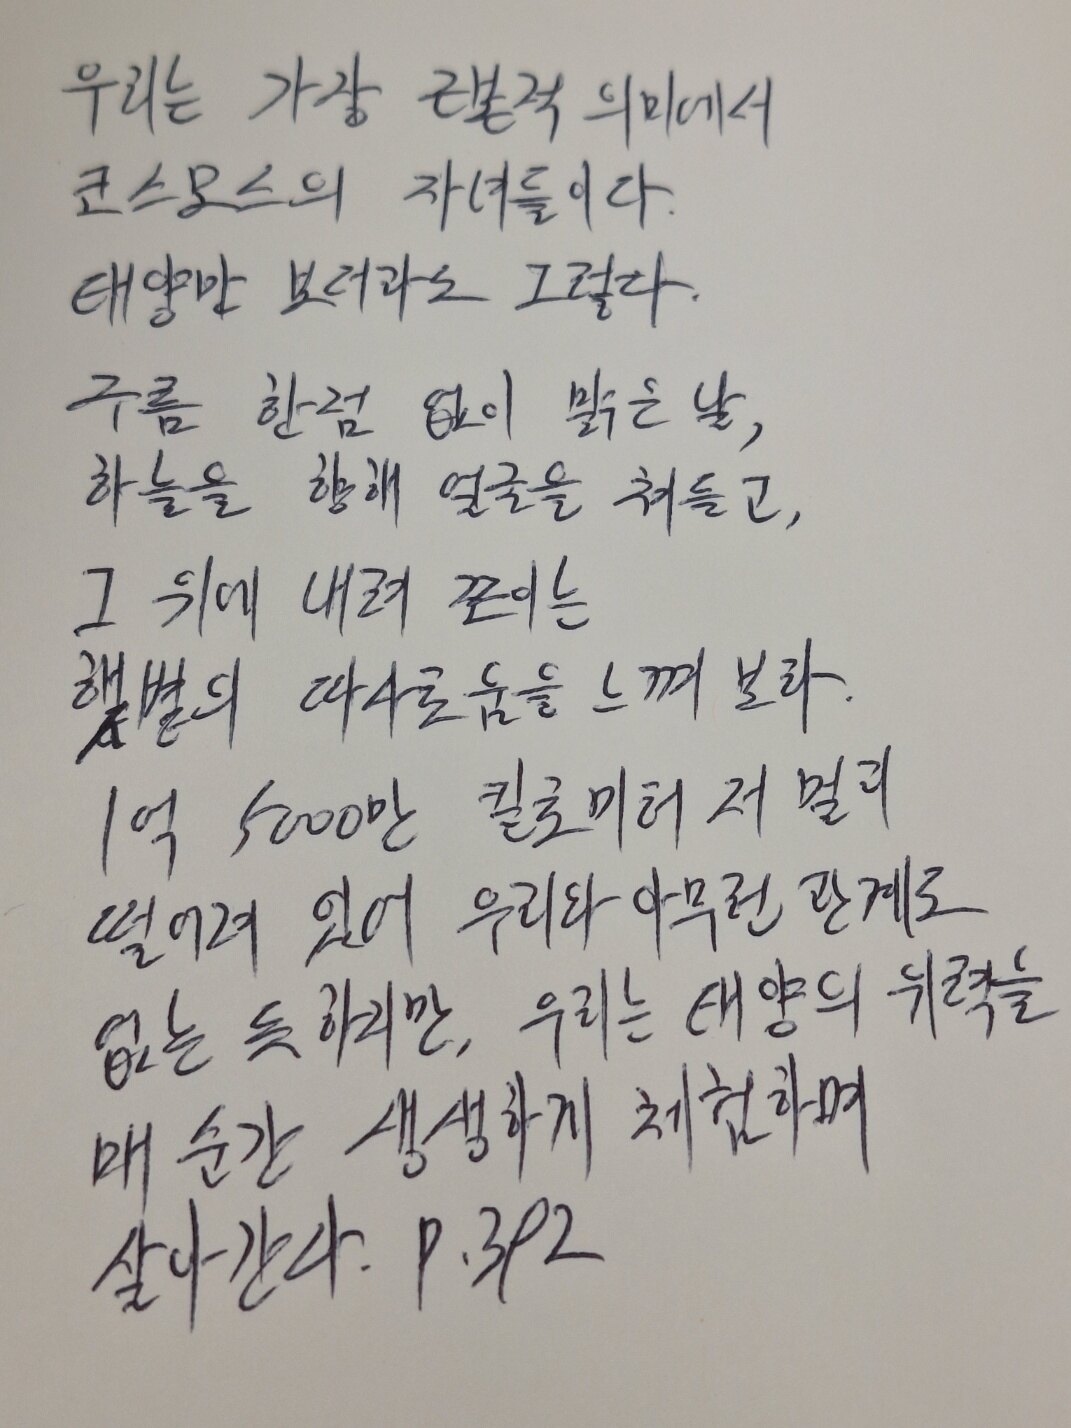 우리는 가장 근본적 의미에서
코스모스의 자녀들이다.
태양만 보더라도 그렇다.
구름 한점 없이 맑은 날,
하늘을 향해 얼굴을 쳐들고,
그 위에 내려 쪼이는
햇볕의 따사로움을 느껴 보라.
1억 5000만 킬로미터 저 멀리
떨어져 있어 우리와 아무런 관계도
없는 듯하지만, 우리는 태양의 위력을
매 순간 생생하게 체험하며
살아간다. p.392